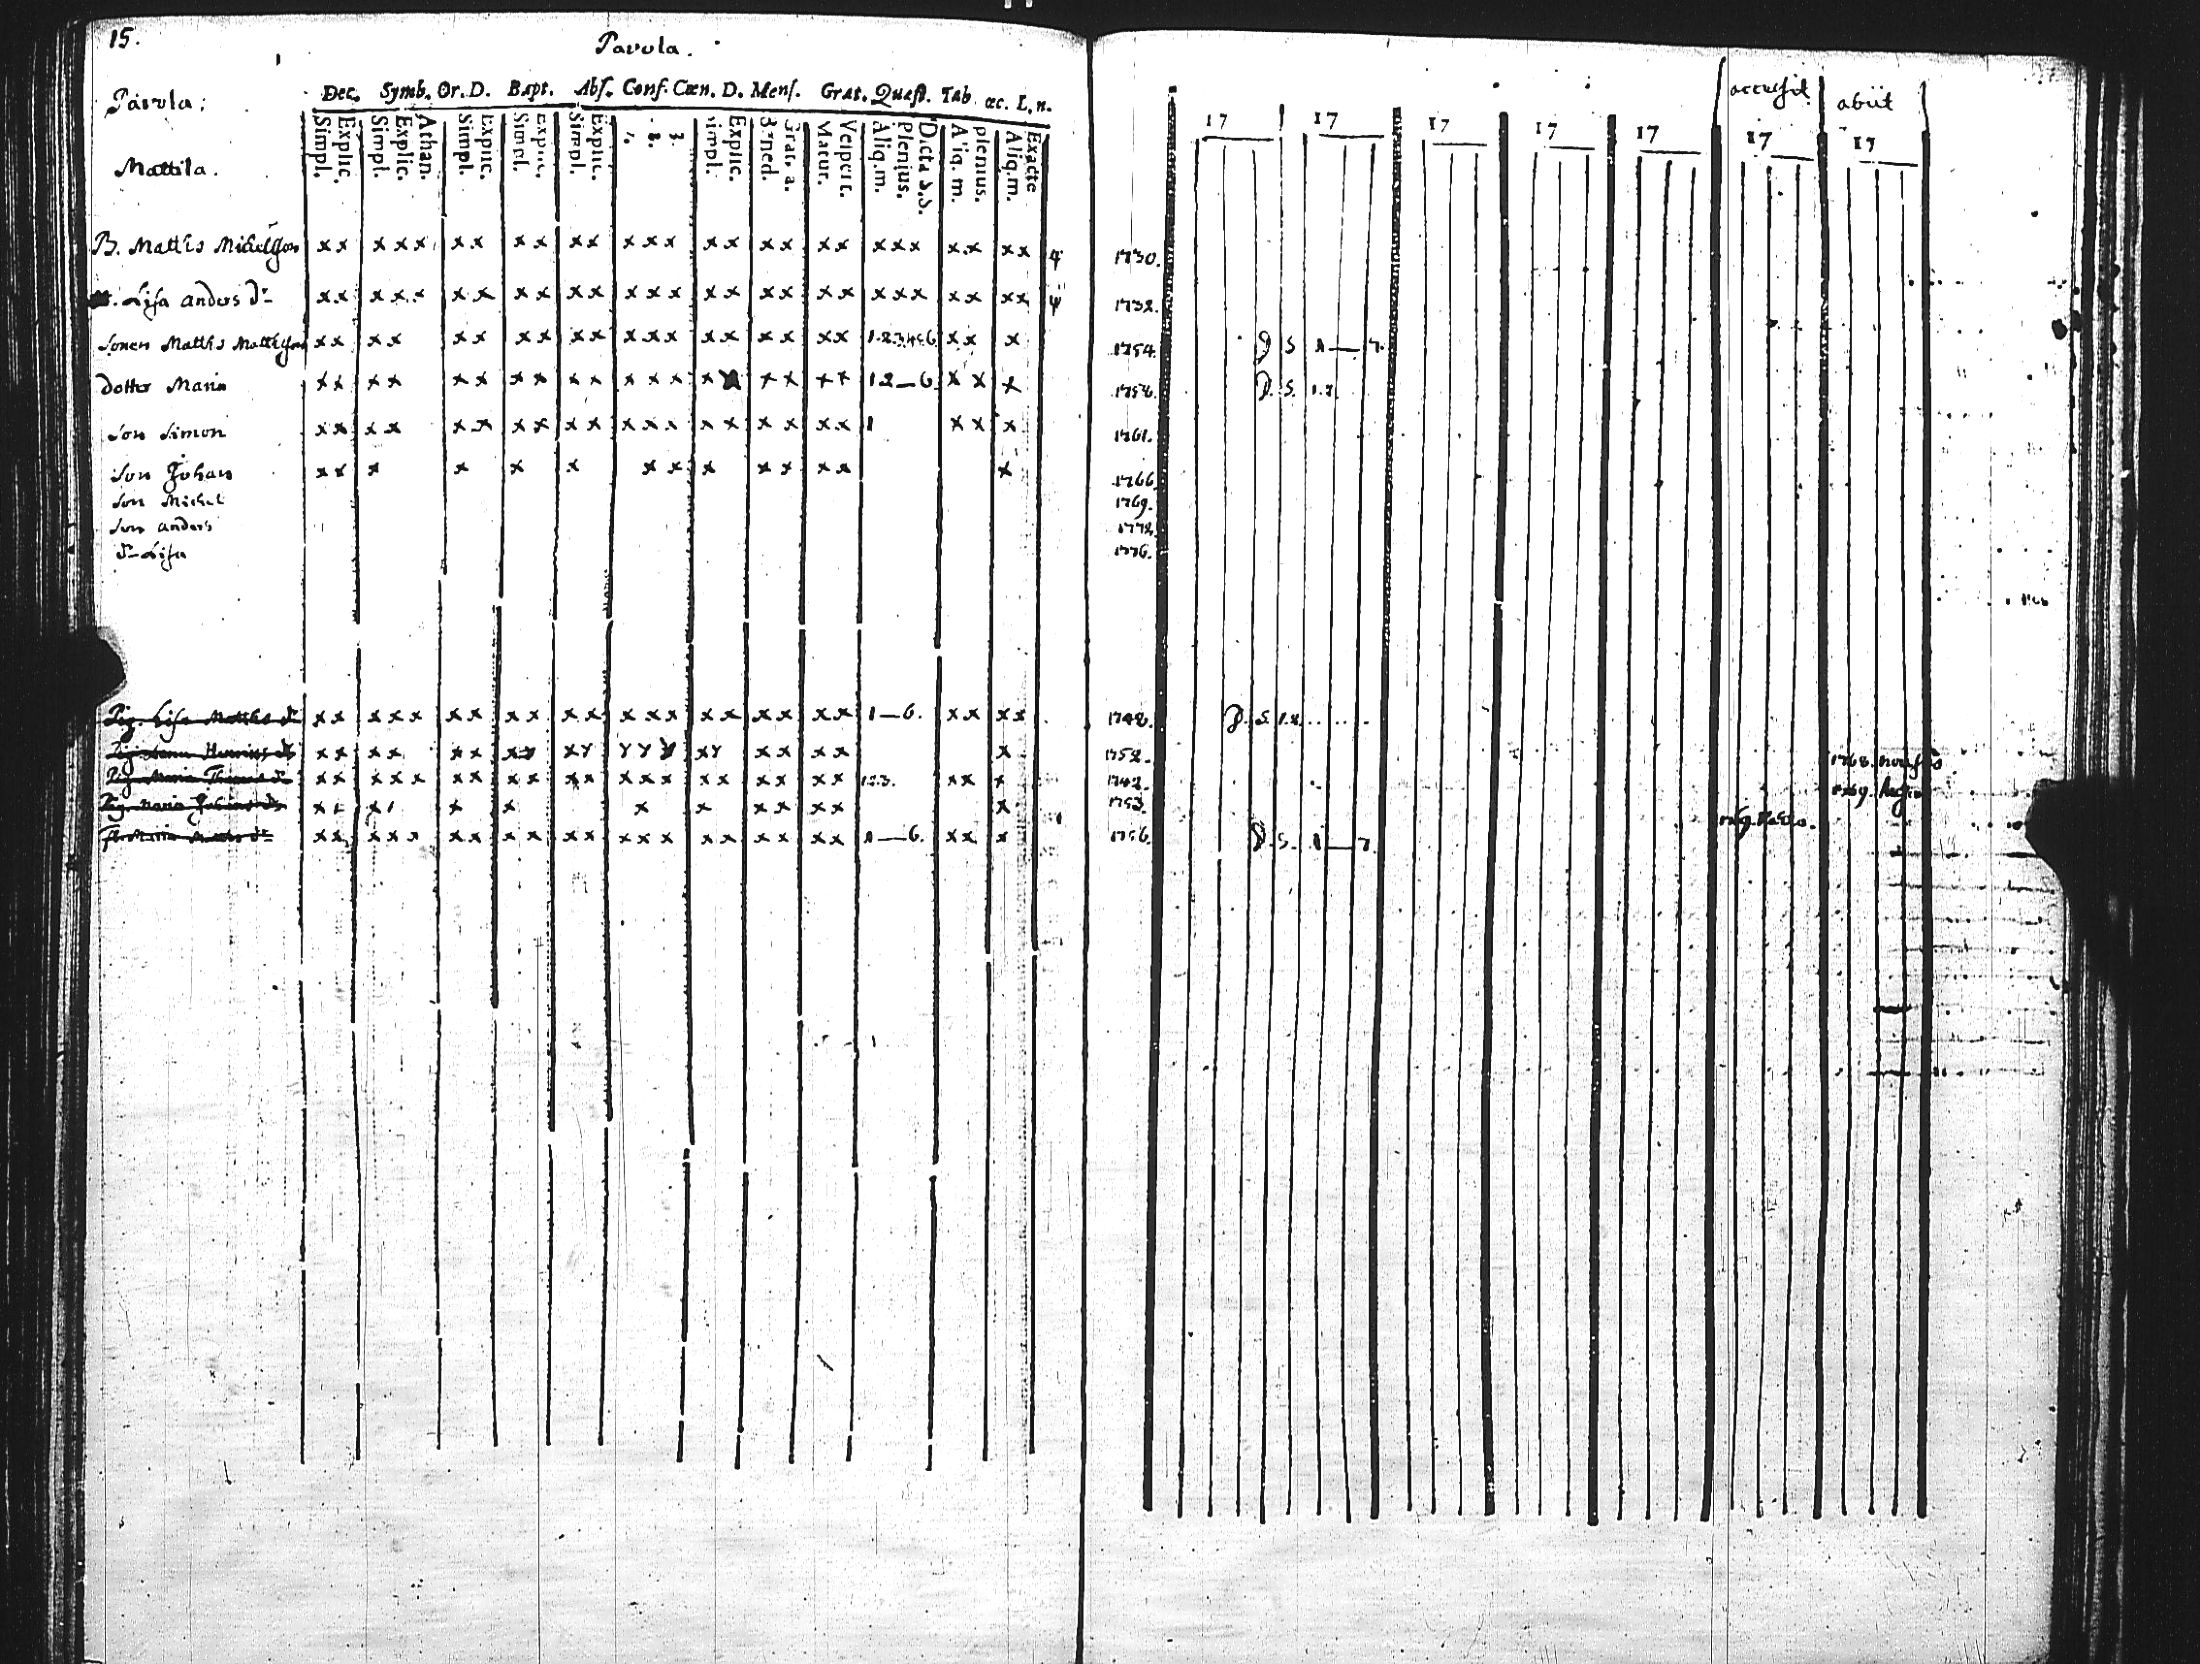 15.
Pavola.
Pavola:
Dec. Symb. Or. D. Bapt. Abs. Conf. Cœn. D. Mens. Grat. Quæst. Tab. œc. L. n.
accessit
abiit
Mattila.
Simpl. Explic. Simpl. Explic. Athan. Simpl. Explic. Simpl. Explic. Simpl. Explic. 1. 2. 3. Simpl. Explic. Bened. Grat. a. Matut. Vespert. Aliq. m. Plenius. Dicta S. S. Aliq. m. plenius. Aliq. m. Exacte
17 17 17 17 17 17 17
B. Matths Michelsson x x x x x x x x x x x x x x x x x x x x x x x x x x x 1730.
Lisa anders dr x x x x x x x x x x x x x x x x x x x x x x x x x x x 1732.
Sonen Matths Matthsson x x x x x x x x x x x x x x x x x x x 1.2.3.4.5.6 x x x 1754. D S 1—7.
dotter Maria x x x x x x x x x x x x x x x x x x 1 2—6 x x x D. S. 1.2.
Son Simon x x x x x x x x x x x x x x x x x x x 1 x x x 1761.
Son Johan x x x x x x x x x x x x x x 1766.
Son Michel 1769.
Son anders 1772.
dr Lisa 1776.
Pig. Lisa Matths dr x x x x x x x x x x x x x x x x x x x x 1—6. x x x x 1748. D. S. 1.2.
Pig. Anna Henrics dr x x x x x x x x x x x x x x x x x x x x 1752. 1768.
Pig. Maria Thomas dr x x x x x x x x x x x x x x x x x x x x 1.2.3. x x x 1742. 1769.
Pig. Maria Johans dr x x x x x x x x x x x x 1753.
Maria Matths dr x x x x x x x x x x x x x x x x x x x x 1—6. x x x 1756. D. S. 1—7.